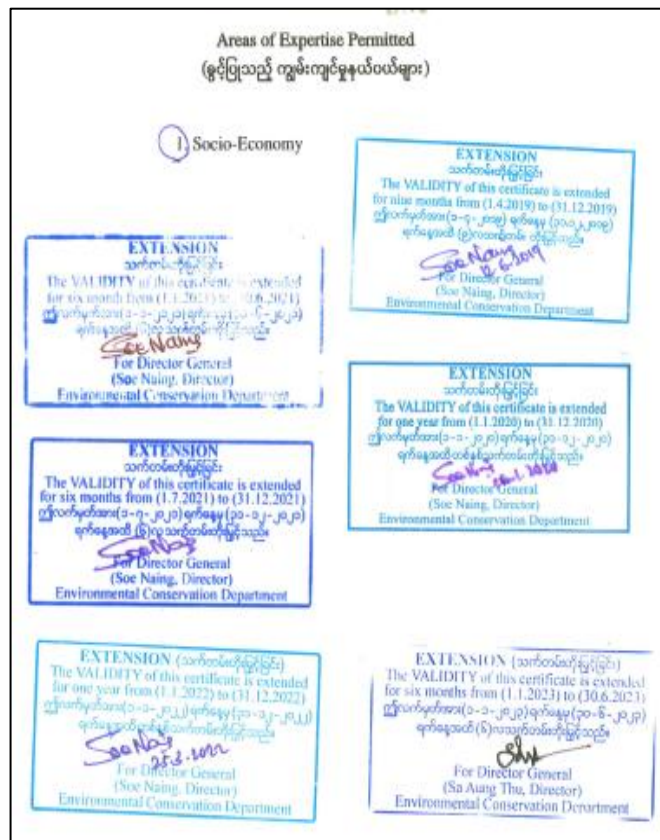 Areas of Expertise Permitted
(ခွင့်ပြုသည့် ကျွမ်းကျင်မှုနယ်ပယ်များ)
1. Socio-Economy
EXTENSION
သက်တမ်းတိုးမြှင့်ခြင်း
The VALIDITY of this certificate is extended
for nine months from (1.4.2019) to (31.12.2019)
ဤလက်မှတ်အား (၁-၄-၂၀၁၉) ရက်နေ့မှ (၃၁-၁၂-၂၀၁၉)
ရက်နေ့အထိ (၉)လသက်တမ်း တိုးမြှင့်သည်။
Soe Naing
12.6.2019
For Director General
(Soe Naing, Director)
Environmental Conservation Department
EXTENSION
သက်တမ်းတိုးမြှင့်ခြင်း
The VALIDITY of this certificate is extended
for six month from (1.1.2021) to (30.6.2021)
ဤလက်မှတ်အား(၁-၁-၂၀၂၁)ရက်နေ့မှ(၃၀-၆-၂၀၂၁)
ရက်နေ့အထိ (၆)လသက်တမ်းတိုးမြှင့်သည်။
Soe Naing
For Director General
(Soe Naing, Director)
Environmental Conservation Department
EXTENSION
သက်တမ်းတိုးမြှင့်ခြင်း
The VALIDITY of this certificate is extended
for one year from (1.1.2020) to (31.12.2020)
ဤလက်မှတ်အား(၁-၁-၂၀၂၀)ရက်နေ့မှ(၃၁-၁၂-၂၀၂၀)
ရက်နေ့အထိတစ်နှစ်သက်တမ်းတိုးမြှင့်သည်။
Soe Naing
For Director General
(Soe Naing, Director)
Environmental Conservation Department
EXTENSION
သက်တမ်းတိုးမြှင့်ခြင်း
The VALIDITY of this certificate is extended
for six months from (1.7.2021) to (31.12.2021)
ဤလက်မှတ်အား(၁-၇-၂၀၂၁)ရက်နေ့မှ(၃၁-၁၂-၂၀၂၁)
ရက်နေ့အထိ (၆)လသက်တမ်းတိုးမြှင့်သည်။
Soe Naing
For Director General
(Soe Naing, Director)
Environmental Conservation Department
EXTENSION (သက်တမ်းတိုးမြှင့်ခြင်း)
The VALIDITY of this certificate is extended
for one year from (1.1.2022) to (31.12.2022)
ဤလက်မှတ်အား(၁-၁-၂၀၂၂)ရက်နေ့မှ(၃၁-၁၂-၂၀၂၂)
ရက်နေ့အထိတစ်နှစ်သက်တမ်းတိုးမြှင့်သည်။
Soe Naing
25.3.2022
For Director General
(Soe Naing, Director)
Environmental Conservation Department
EXTENSION (သက်တမ်းတိုးမြှင့်ခြင်း)
The VALIDITY of this certificate is extended
for six months from (1.1.2023) to (30.6.2023)
ဤလက်မှတ်အား(၁-၁-၂၀၂၃)ရက်နေ့မှ(၃၀-၆-၂၀၂၃)
ရက်နေ့အထိ (၆)လသက်တမ်းတိုးမြှင့်သည်။
For Director General
(Sa Aung Thu, Director)
Environmental Conservation Department